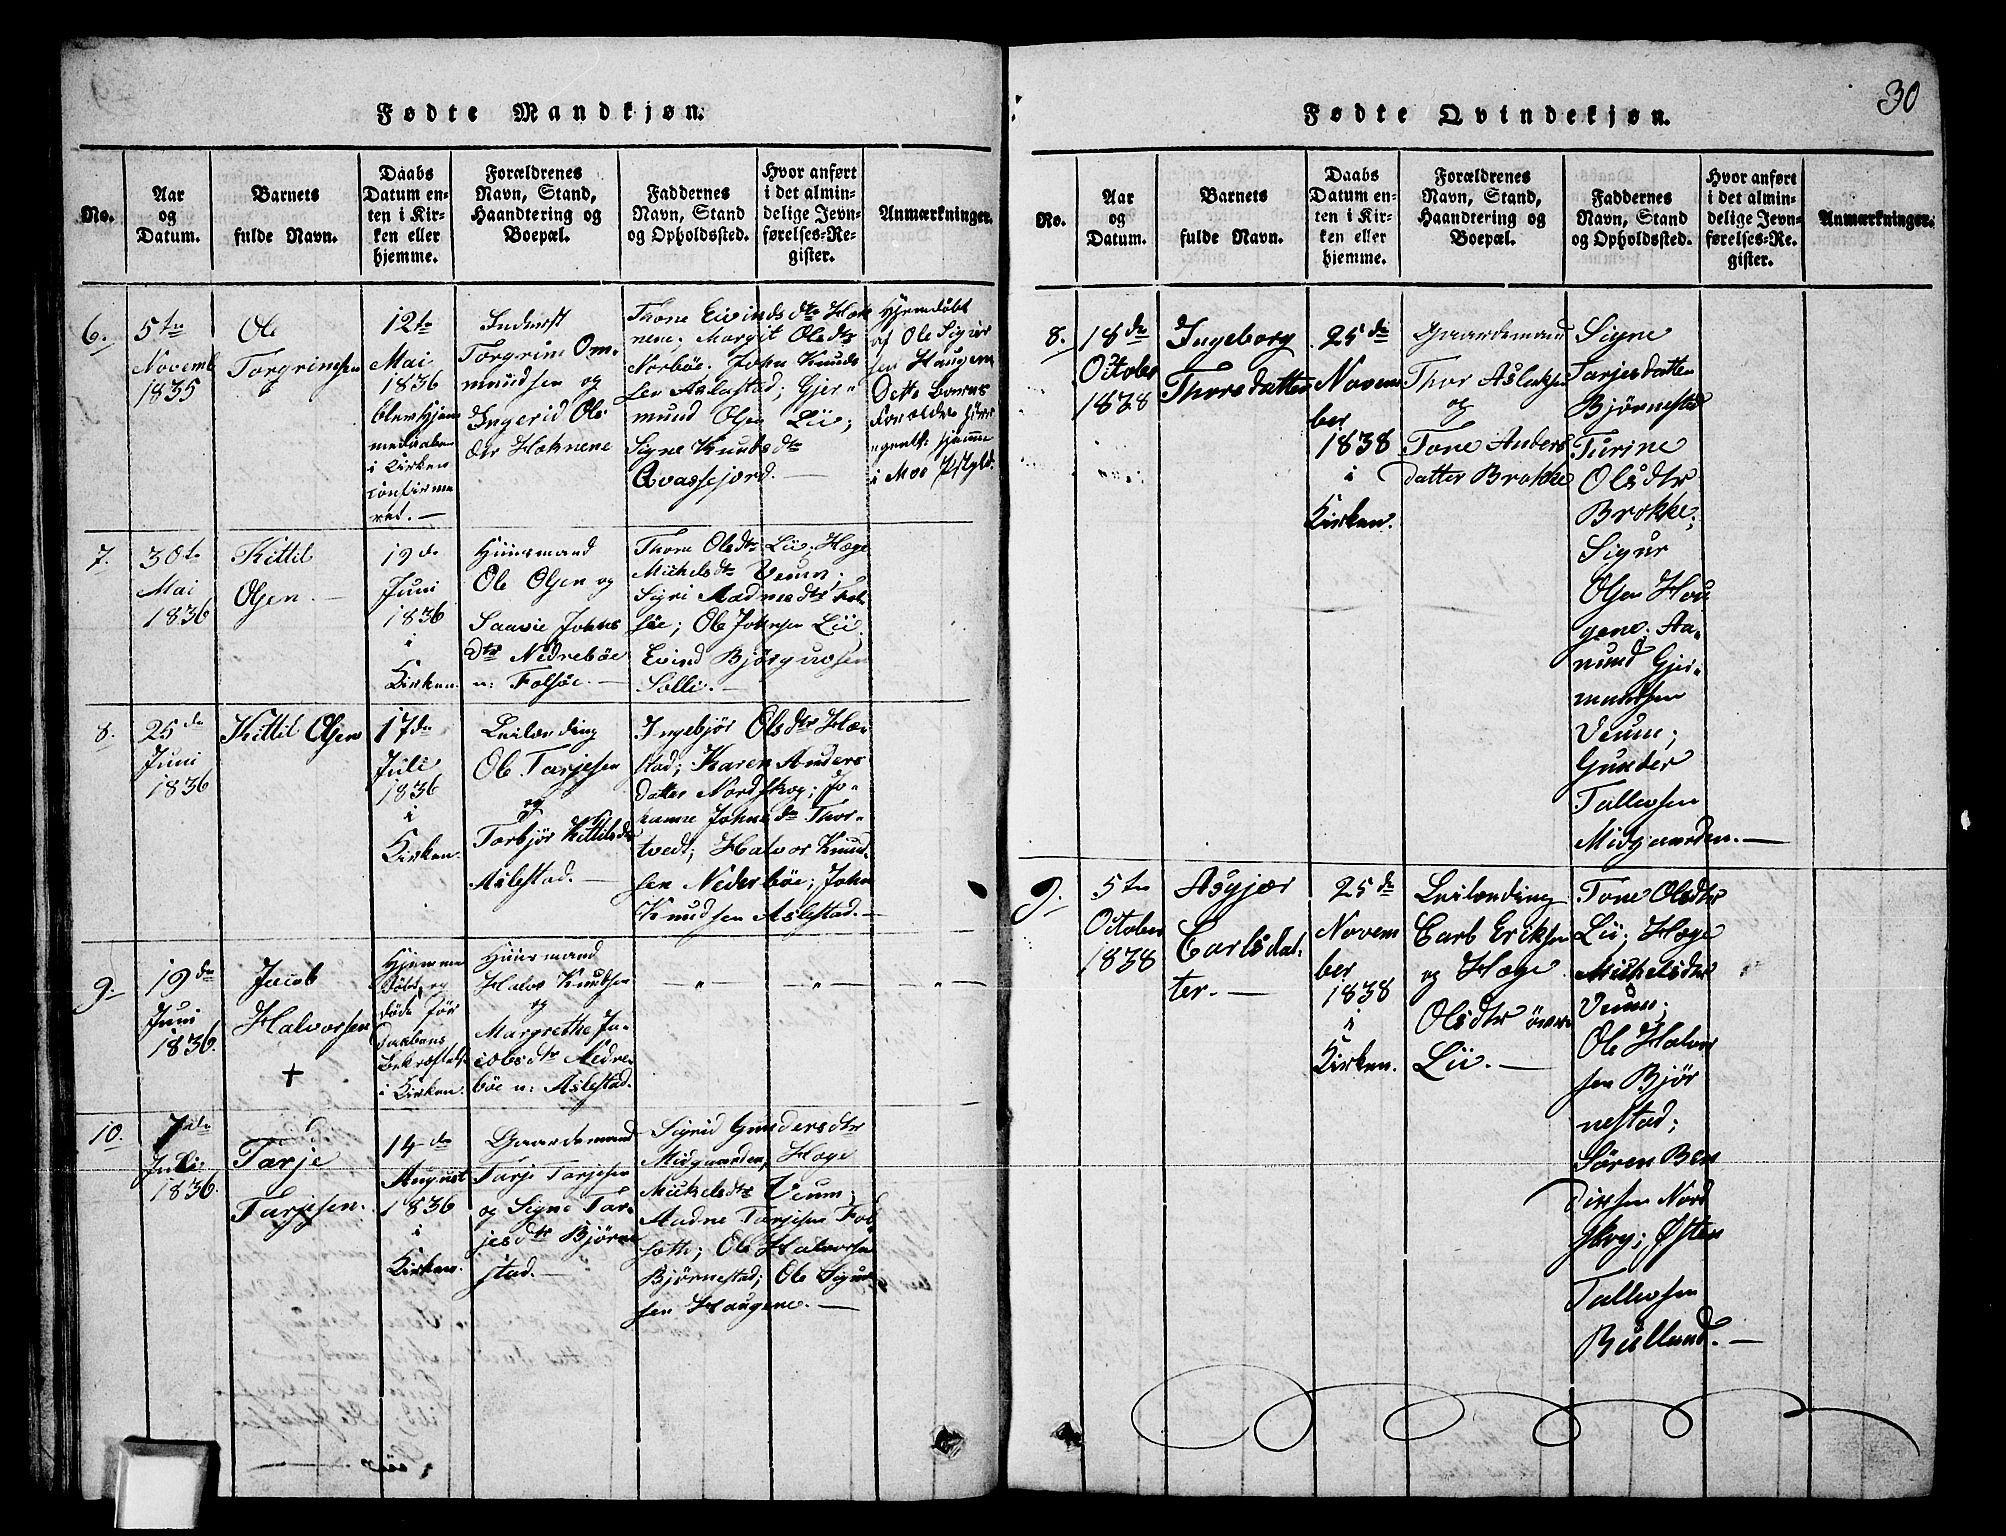 Fødte Mandkjøn.
No.
Aar
og
Datum.
Barnets
fulde Navn.
Daabs
Datum en-
ten i Kir-
ken eller
hjemme.
Forældrenes
Navn, Stand,
Haandtering og
Boepæl.
Faddernes
Navn, Stand
og Opholdssted.
Hvor anført
i det almin-
delige Jevn-
førelses-Re-
gister.
Anmærkninger.
6.
5te
Novemb
1835
Ole
Torgrimsen
12te
Mai
1836
blev Hjem
medaaben
i Kirken
confirme
red. —
Inderst
Torgrim Om-
mundsen og
Ingerid Ols
dtr Hoknene
Thone Eivindsdtr Hok
nene; Margit Olsdtr
Norbøe; John Knud
sen Aslestad; Gjer-
mund Olsen Lii;
Signe Knudsdtr
Qvassejord. —
Hjemdøbt
af Ole Sigur
sen Haugene
Dette Barns
Forældre hører
egentl: hjemme
i Moe Pstgld.
7.
30te
Mai
1836
Kittil
Olsen. —
19de
Juni
1836
i
Kirken.
Huusmand
Ole Olsen og
Saavie Johns
dtr Nedrebøe
u: Folsøe. —
Thone Olsdtr Lii; Hæge
Mickelsdtr Veum;
Sigri Aadnesdtr Fol-
søe; Ole Johnsen Lii
Evind Bjørguvsen
Solli. —
8.
25de
Juni
1836
Kittil Olsen
17de
Juli
1836
i
Kirken.
Leilænding
Ole Tarjesen
og
Torbjør Kittilsdr
Aslestad. —
Ingebjør Olsdtr Hæ-
stad; Karen Anders
datter Nordskog; Jo-
hanne Johnsdtr Thor-
tvedt; Halvor Knud-
sen Nederbøe; John
Knudsen Aslestad. —
9.
19de
Juni
1836.
Jacob
Halvorsen
+
Hjemme
døbt, og
døde før
Daabens
Bekræftelse
i Kirken.
Huusmand
Halvor Knudsen
og
Margrethe Ja-
cobsdtr Nedre
bøe u: Aslestad.
— „ — — „ — — „ —
10.
7de
Juli
1836.
Tarje
Tarjesen.
14de
August
1836
i
Kirken.
Gaardemand
Tarje Tarjesen
og Signe Tar-
jesdtr Bjørne
stad. —
Sigrid Gundersdtr
Midgaarden; Hæge
Mickelsdtr Veum;
Aadne Tarjesen Fol
sætte; Ole Halvorsen
Bjørnestad; Ole Sigurd
sen Haugene. —
30
Fødte Qvindekjøn.
No.
Aar
og
Datum.
Barnets
fulde Navn.
Daabs
Datum en-
ten i Kir-
ken eller
hjemme.
Forældrenes
Navn, Stand,
Haandtering og
Boepæl.
Faddernes
Navn, Stand
og Opholdssted.
Hvor anført
i det almin-
delige Jevn-
førelses-Re-
gister.
Anmærkninger.
8.
18de
October
1838
Ingeborg
Thorsdatter
25de
Novem
ber
1838
i
Kirken.
Gaardemand
Thor Aslaksen
og
Tone Anders
datter Brokke
Signe
Tarjesdatter
Bjørnestad
Turine
Olsdtr
Brokke;
Sigur
Olsen Hou
gene; Aa-
mund Gjer-
mundsen
Veum;
Gunder
Tallevsen
Midgaarden. —
9.
5te
October
1838
Asgjær
Carlsdat-
ter. —
25de
Novem
ber
1838
i
Kirken.
Leilænding
Carl Eriksen
og Hæge
Olsdtr øvre
Lii. —
Tone Olsdtr
Lii; Hæge
Mickelsdtr
Veum;
Ole Halvor
sen Bjør
nestad;
Søren Ben
dixsen Nord
skog; Østen
Tallevsen
Buslund. —